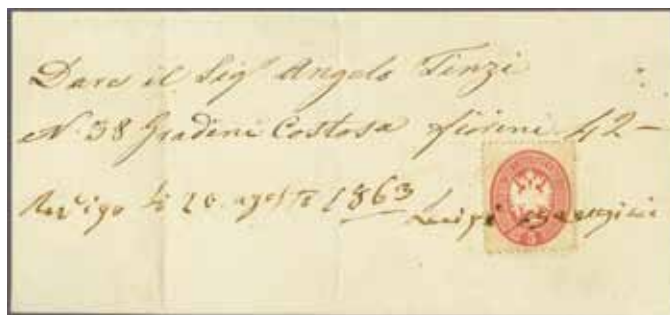 Dare il Sigr Angelo Tinzi
N. 38 Gradini Costosa fiorini 42 —
li 20 agosto 1863 Luigi